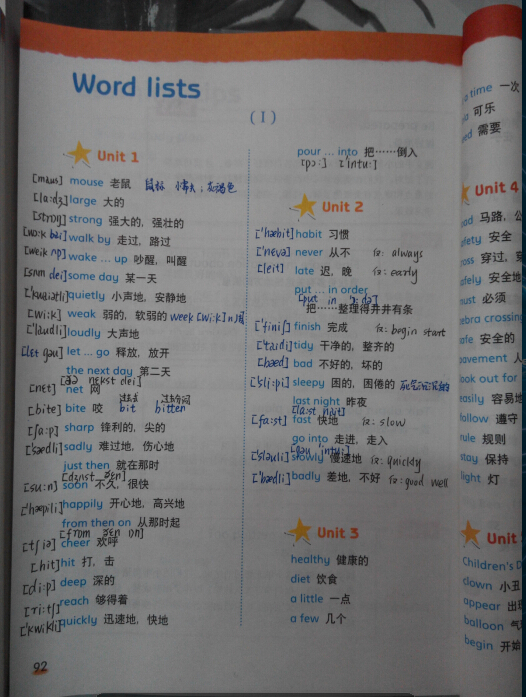 Word lists
( I )
Unit 1
[maus] mouse 老鼠 鼠标
[la:dʒ] large 大的
[strɒŋ] strong 强大的, 强壮的
[wɔ:k bai] walk by 走过, 路过
[weik ʌp] wake ... up 吵醒, 叫醒
[sʌm dei] some day 某一天
['kwaiətli] quietly 小声地, 安静地
[wi:k] weak 弱的, 软弱的 week [wi:k] n
['laudli] loudly 大声地
[let gəu] let ... go 释放, 放开
the next day 第二天
[ðə nekst dei]
[net] net 网
[bite] bite 咬 bit bitten
[ʃa:p] sharp 锋利的, 尖的
['sædli] sadly 难过地, 伤心地
just then 就在那时
[dʒʌst ðen]
[su:n] soon 不久, 很快
['hæpili] happily 开心地, 高兴地
from then on 从那时起
[from ðen ɒn]
[tʃiə] cheer 欢呼
[hit] hit 打, 击
[di:p] deep 深的
[ri:tʃ] reach 够得着
['kwikli] quickly 迅速地, 快地
92
pour ... into 把……倒入
[pɔ:] ['intu:]
Unit 2
['hæbit] habit 习惯
['nevə] never 从不 反: always
[leit] late 迟, 晚 反: early
put ... in order
[put in 'ɔ:də]
把……整理得井井有条
['finiʃ] finish 完成 反: begin start
['taidi] tidy 干净的, 整齐的
[bæd] bad 不好的, 坏的
['sli:pi] sleepy 困的, 困倦的
last night 昨夜
[la:st nait]
[fa:st] fast 快地 反: slow
go into 走进, 走入
[gəu 'intu:]
['sləuli] slowly 慢速地 反: quickly
['bædli] badly 差地, 不好 反: good well
Unit 3
healthy 健康的
diet 饮食
a little 一点
a few 几个
a time 一次
可乐
需要
Unit 4
马路, 公
安全
穿过, 穿
安全地
must 必须
zebra crossing
safe 安全的
pavement 人
look out for
easily 容易地
follow 遵守
rule 规则
stay 保持
light 灯
Unit
Children's D
clown 小丑
appear 出现
balloon 气
begin 开始